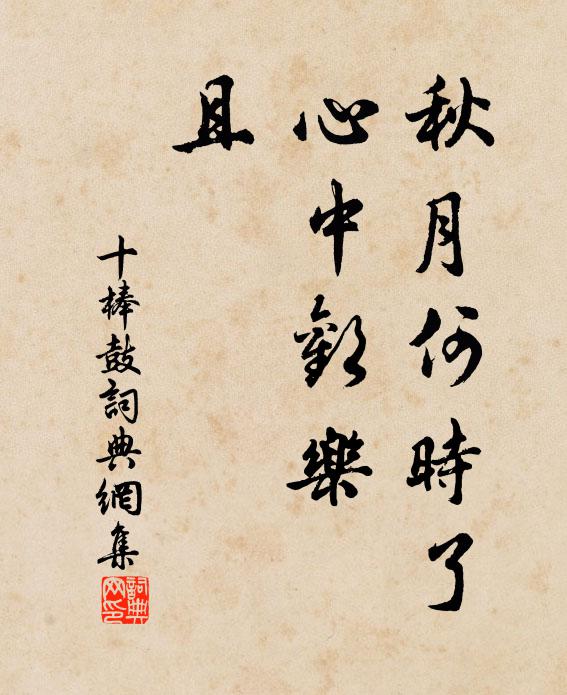 秋月何時了
心中歡樂
且
十棒鼓詞典網集
詞典
网印